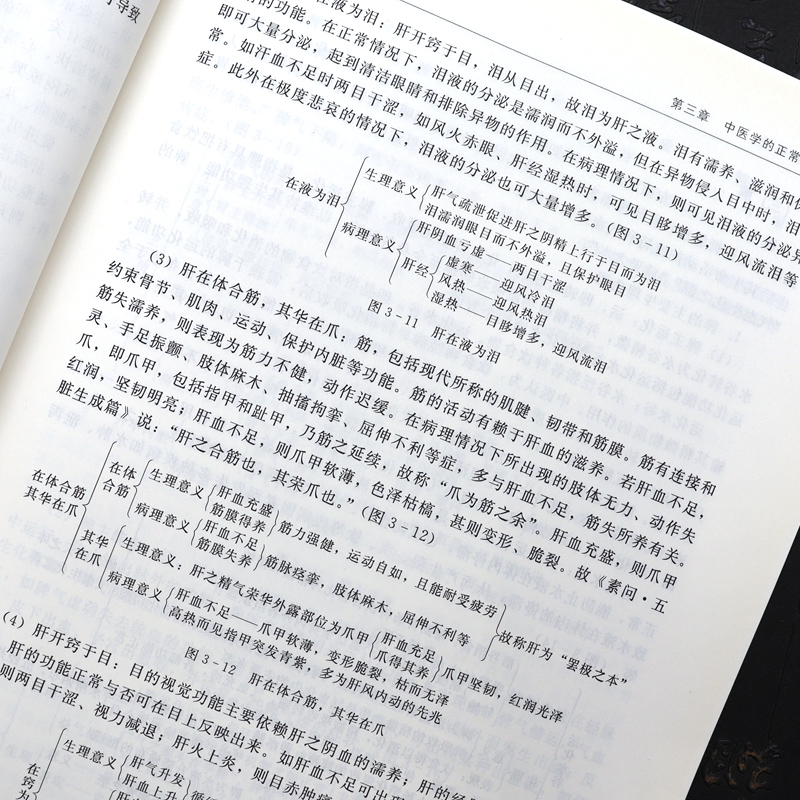 导致
第三章 中医学的正常
在液为泪：肝开窍于目，泪从目出，故泪为肝之液。泪有濡养、滋润和保
的功能。在正常情况下，泪液的分泌是濡润而不外溢，但在异物侵入目中时，泪
即可大量分泌，起到清洁眼睛和排除异物的作用。在病理情况下，则可见泪液的分泌异
常。如汗血不足时两目干涩，如风火赤眼、肝经湿热时，可见目眵增多，迎风流泪等
症。此外在极度悲哀的情况下，泪液的分泌也可大量增多。（图 3-11）
在液为泪
生理意义
肝气疏泄促进肝之阴精上行于目而为泪
泪濡润眼目而不外溢，且保护眼目
病理意义
肝阴血亏虚——两目干涩
肝经
虚寒——迎风冷泪
风热——迎风热泪
湿热——目眵增多，迎风流泪
图 3-11 肝在液为泪
（3）肝在体合筋，其华在爪：筋，包括现代所称的肌腱、韧带和筋膜。筋有连接和
约束骨节、肌肉、运动、保护内脏等功能。筋的活动有赖于肝血的滋养。若肝血不足，
筋失濡养，则表现为筋力不健，动作迟缓。在病理情况下所出现的肢体无力、动作失
灵、手足振颤、肢体麻木、抽搐拘挛、屈伸不利等症，多与肝血不足，筋失所养有关。
爪，即爪甲，包括指甲和趾甲，乃筋之延续，故称“爪为筋之余”。肝血充盛，则爪甲
红润，坚韧明亮；肝血不足，则爪甲软薄，色泽枯槁，甚则变形、脆裂。故《素问·五
脏生成篇》说：“肝之合筋也，其荣爪也。”（图 3-12）
在体合筋
其华在爪
在体
合筋
生理意义
肝血充盛
筋膜得养
筋力强健，运动自如，且能耐受疲劳
病理意义
肝血不足
筋膜失养
筋脉痉挛，肢体麻木，屈伸不利等
故称肝为“罢极之本”
其华
在爪
生理意义：肝之精气荣华外露部位为爪甲
肝血充足
爪得其养
爪甲坚韧，红润光泽
病理意义
肝血不足——爪甲软薄，变形脆裂，枯而无泽
高热而见指甲突发青紫，多为肝风内动的先兆
图 3-12 肝在体合筋，其华在爪
（4）肝开窍于目：目的视觉功能主要依赖肝之阴血的濡养；肝的经
肝的功能正常与否可在目上反映出来。如肝血不足可出现
则两目干涩、视力减退；肝火上炎，则目赤肿
在
窍
为
生理意义
肝气升发
肝血上升